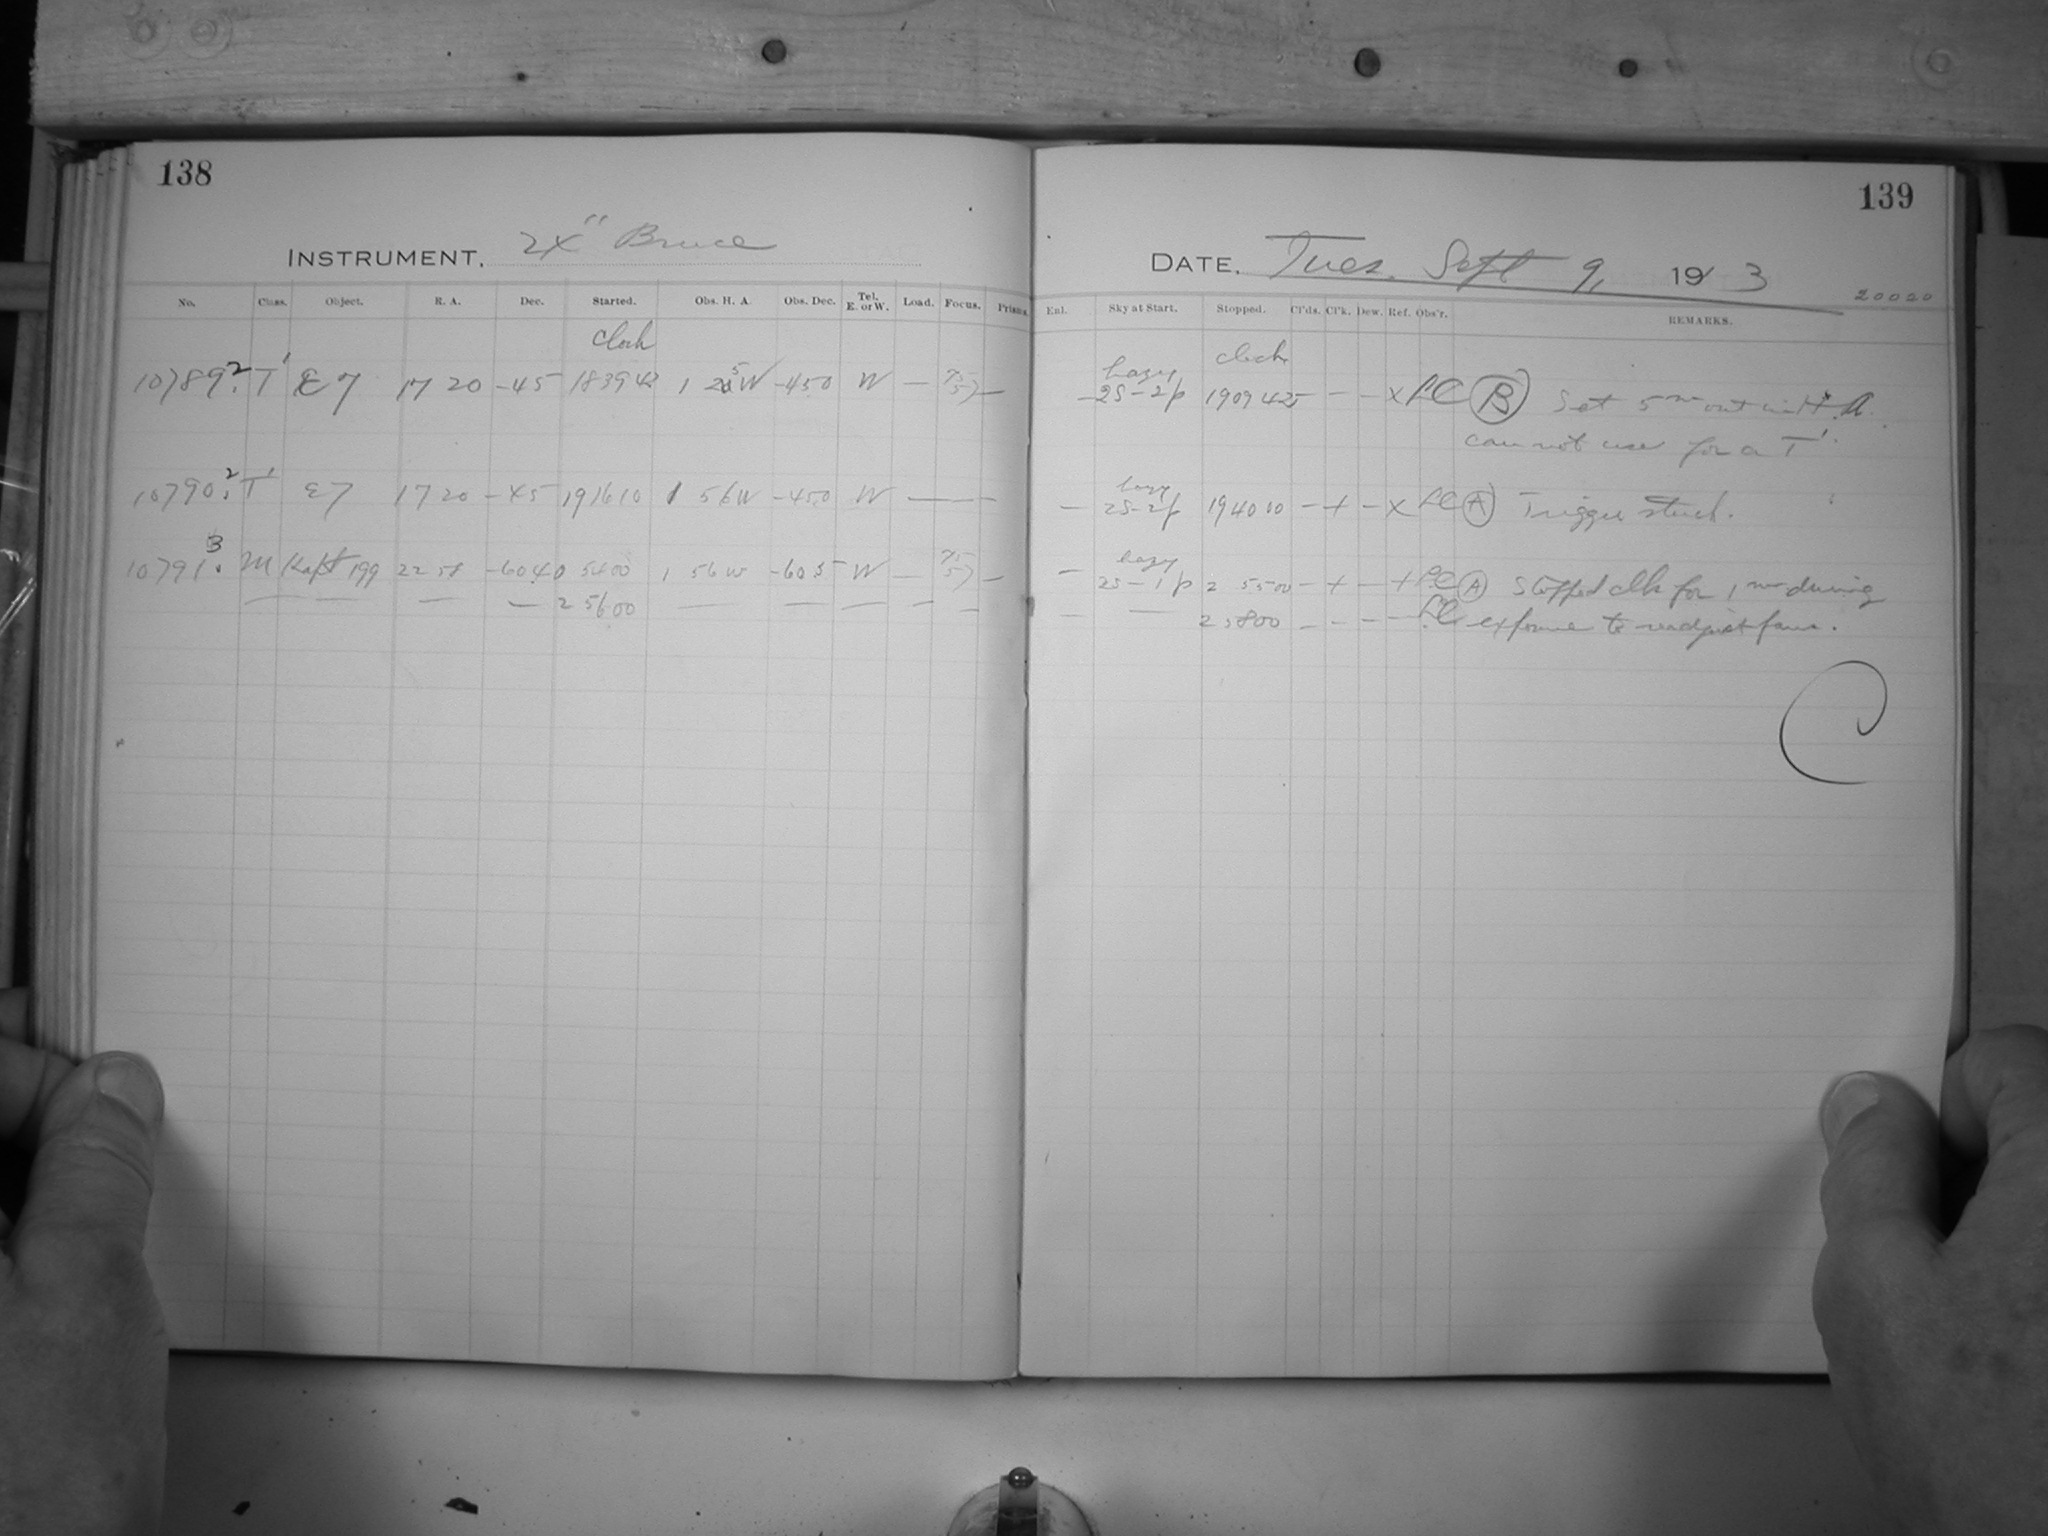 138
INSTRUMENT. 24" Bruce
No. Class. Object. R. A. Dec. Started. Obs. H. A. Obs. Dec. Tel. E. or W. Load. Focus. Prisms.
Clock
10789.2 T' E7 17 20 -45 183942 1 25 W -450 W — 75 57 —
10790.2 T' E7 17 20 -45 191610 1 56 W -450 W — — —
10791.3 M Kapt 199 22 58 -6040 5400 1 56 W -605 W — 75 57 —
— — — — 2 5600 — — — — —
139
DATE. Tues. Sept 9, 1913
20020
Enl. Sky at Start. Stopped. Cl'ds. Cl'k. Dew. Ref. Obs'r. REMARKS.
clock
hazy
25-2p 190942 - - x LC (B) Set 5m out in H.A.
cannot use for a T'.
hazy
— 25-2p 194000 - + - x LC (A) Trigger stuck.
hazy
— 25-1p 2 5500 - + - + LC (A) Stopped clk for 1m during
— — 2 5800 - - - - LC exposure to readjust fans.
C